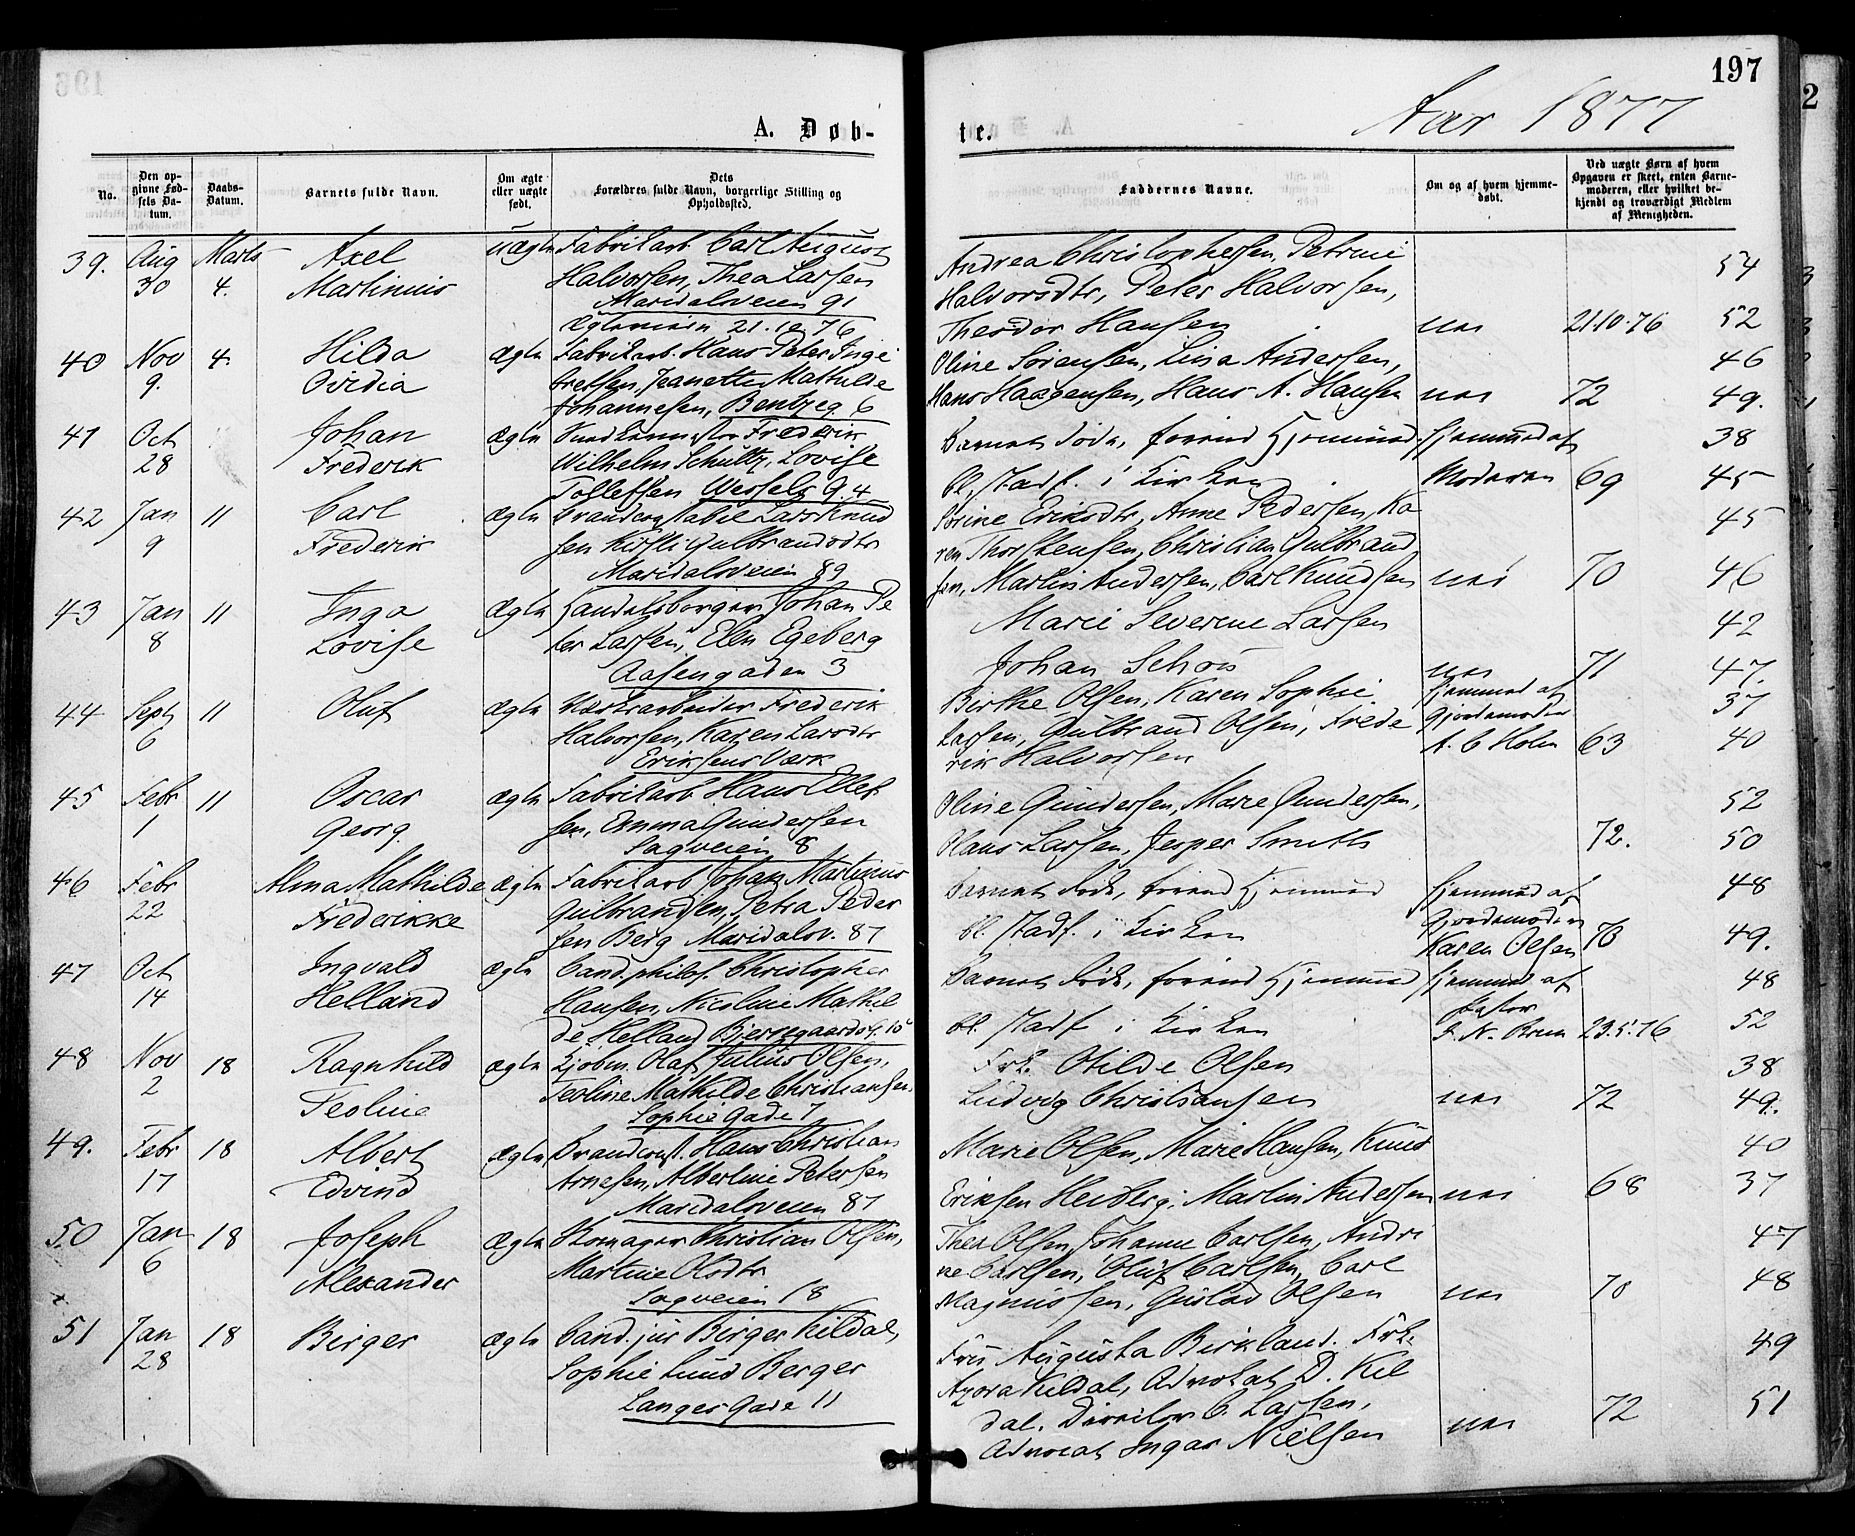 197
A. Døb-
te.
Aar 1877
No.
Den op-
givne Fød-
sels Da-
tum.
Daabs-
Datum.
Barnets fulde Navn.
Om ægte
eller uægte
født.
Dets
Forældres fulde Navn, borgerlige Stilling og
Opholdssted.
Faddernes Navne.
Om og af hvem hjemme-
døbt.
Ved uægte Børn af hvem
Opgaven er skeet, enten Barne-
moderen, eller hvilket be-
kjendt og troværdigt Medlem
af Menigheden.
39. Aug Marts Axel uægte Fabrikarb Carl August
30 4. Martinius Halvorsen, Thea Larsen
Maridalsveien 91
21.10 76
Andrea Christophersen, Petrine 54
Halvorsdtr, Peter Halvorsen,
Theodor Hansen nei 21.10.76 52
40 Nov 4. Hilda ægte Fabrikarb. Hans Peter Inge
9. Ovidia bretsen, Jeanette Mathilde
Johannesen, Bentzeg 6
Oline Sørensen, Lina Andersen, 46
Hans Haagensen, Hans A. Hansen nei 72 49.
41 Oct Johan ægte Frederik
28 Frederik Wilhelm Schultz, Lovise
Tollefsen Wessels G. 4
Barnet døde, forend Hjemmed. Hjemmed af 38
bl. stadf. i Kirken Moderen 69 45
42 Jan 11 Carl ægte Brandconstabel Lars Knud
9 Frederik sen Kirsti Gulbrandsdtr
Maridalsveien 89
Sørine Eriksdtr, Anne Pedersen, Ka 45
ren Thorstensen, Christian Gulbrand
sen, Martin Andersen, Carl Knudsen nei 70 46
43 Jan 11 Inga ægte Handelsborger Johan Pe
8 Lovise ter Larsen, Elen Egeberg
Aasengaden 3
Marie Severine Larsen 42
Johan Schou nei 71 47.
44 Sept 11 Oluf ægte Værksarbeider Frederik
6 Halvorsen, Karen Larsdtr
Eriksens Værk
Birthe Olsen, Karen Sophie Hjemmed af 37
Larsen, Gulbrand Olsen, Frede Gjordemoder
rik Halvorsen A. C Holm 63 40
45 Febr 11 Oscar ægte Fabrikarb Hans Ellef
1 Georg. sen, Emma Gundersen
Sagveien 8
Oline Gundersen, Marie Gundersen, 52
Olaus Larsen, Jesper Smith 72. 50
46 Febr Alma Mathilde ægte Fabrikarb Johan Martinius
22 Frederikke Gulbrandsen, Petra Peder
sen Berg Maridalsv. 87
Barnet døde, forend Hjemmed Hjemmed af 48
bl. stadf. i Kirken Gjordemoder
Karen Olsen 73 49.
47 Oct Ingvald ægte Cand. philos. Christopher
14 Helland Hansen, Nicoline Mathil
de Helland Bjerregaardsg. 10
Barnet døde, forend Hjemmed Hjemmed af 48
bl. stadf i Kirken Pastor
J. N. Brun 23.5.76 52
48 Nov 18 Ragnhild ægte Kjøbm. Olaf Julius Olsen,
2 Teoline Teoline Mathilde Christiansen,
Sophie Gade 7
Frk. Otilde Olsen 38
Ludvig Christiansen nei 72 49.
49. Febr 18 Albert ægte Brandconst. Hans Christian
17 Edvind Arnesen, Albertine Petersen
Maridalsveien 87
Marie Olsen, Marie Hansen, Knud 40
Eriksen Heiberg, Martin Andersen nei 68 37
50 Jan 18 Joseph ægte Skomager Christian Olsen,
6 Alexander Martine Olsdtr
Sagveien 18
Thea Olsen, Johanne Carlsen, Andri 47
ne Carlsen, Oluf Carlsen, Carl
Magnussen, Gustav Olsen nei 70 48
51 Jan 18 Birger ægte Cand. jur Birger Kildal,
28 Sophie Lund Berger
Langes Gade 11
Fru Augusta Birkland. Frk. 49
Azora Kildal, Advokat D. Kil
dal. Direktør C. Larsen, 72 51
Advocat Ingar Nielsen nei